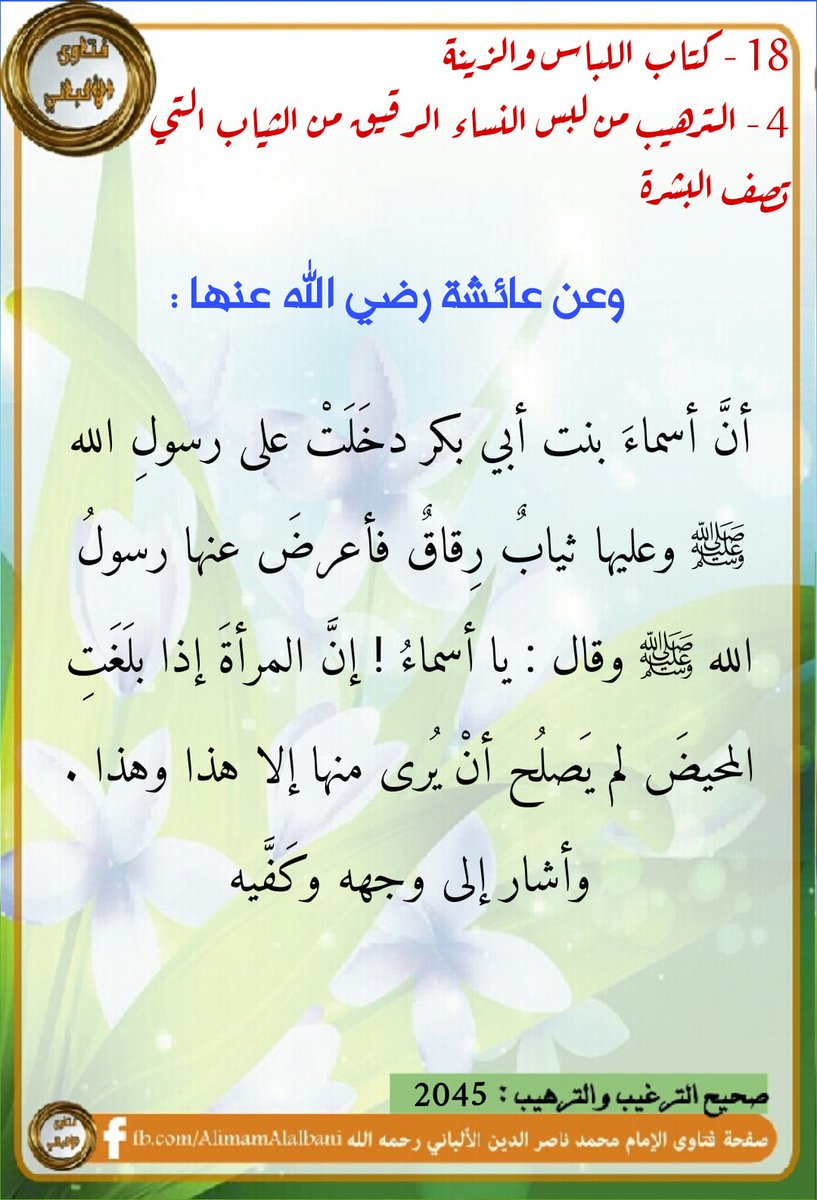 فتاوى
الألباني
18 - كتاب اللباس والزينة
4 - الترهيب من لبس النساء الرقيق من الثياب التي
تصف البشرة
وعن عائشة رضي الله عنها :
أنَّ أسماءَ بنت أبي بكر دخَلَتْ على رسولِ الله
ﷺ وعليها ثيابٌ رِقاقٌ فأعرضَ عنها رسولُ
الله ﷺ وقال : يا أسماءُ ! إنَّ المرأةَ إذا بلَغَتِ
المحيضَ لم يَصلُح أنْ يُرى منها إلا هذا وهذا .
وأشار إلى وجهه وكَفَّيه
صحيح الترغيب والترهيب : 2045
صفحة فتاوى الإمام محمد ناصر الدين الألباني رحمه الله fb.com/AlimamAlalbani
فتاوى
الألباني